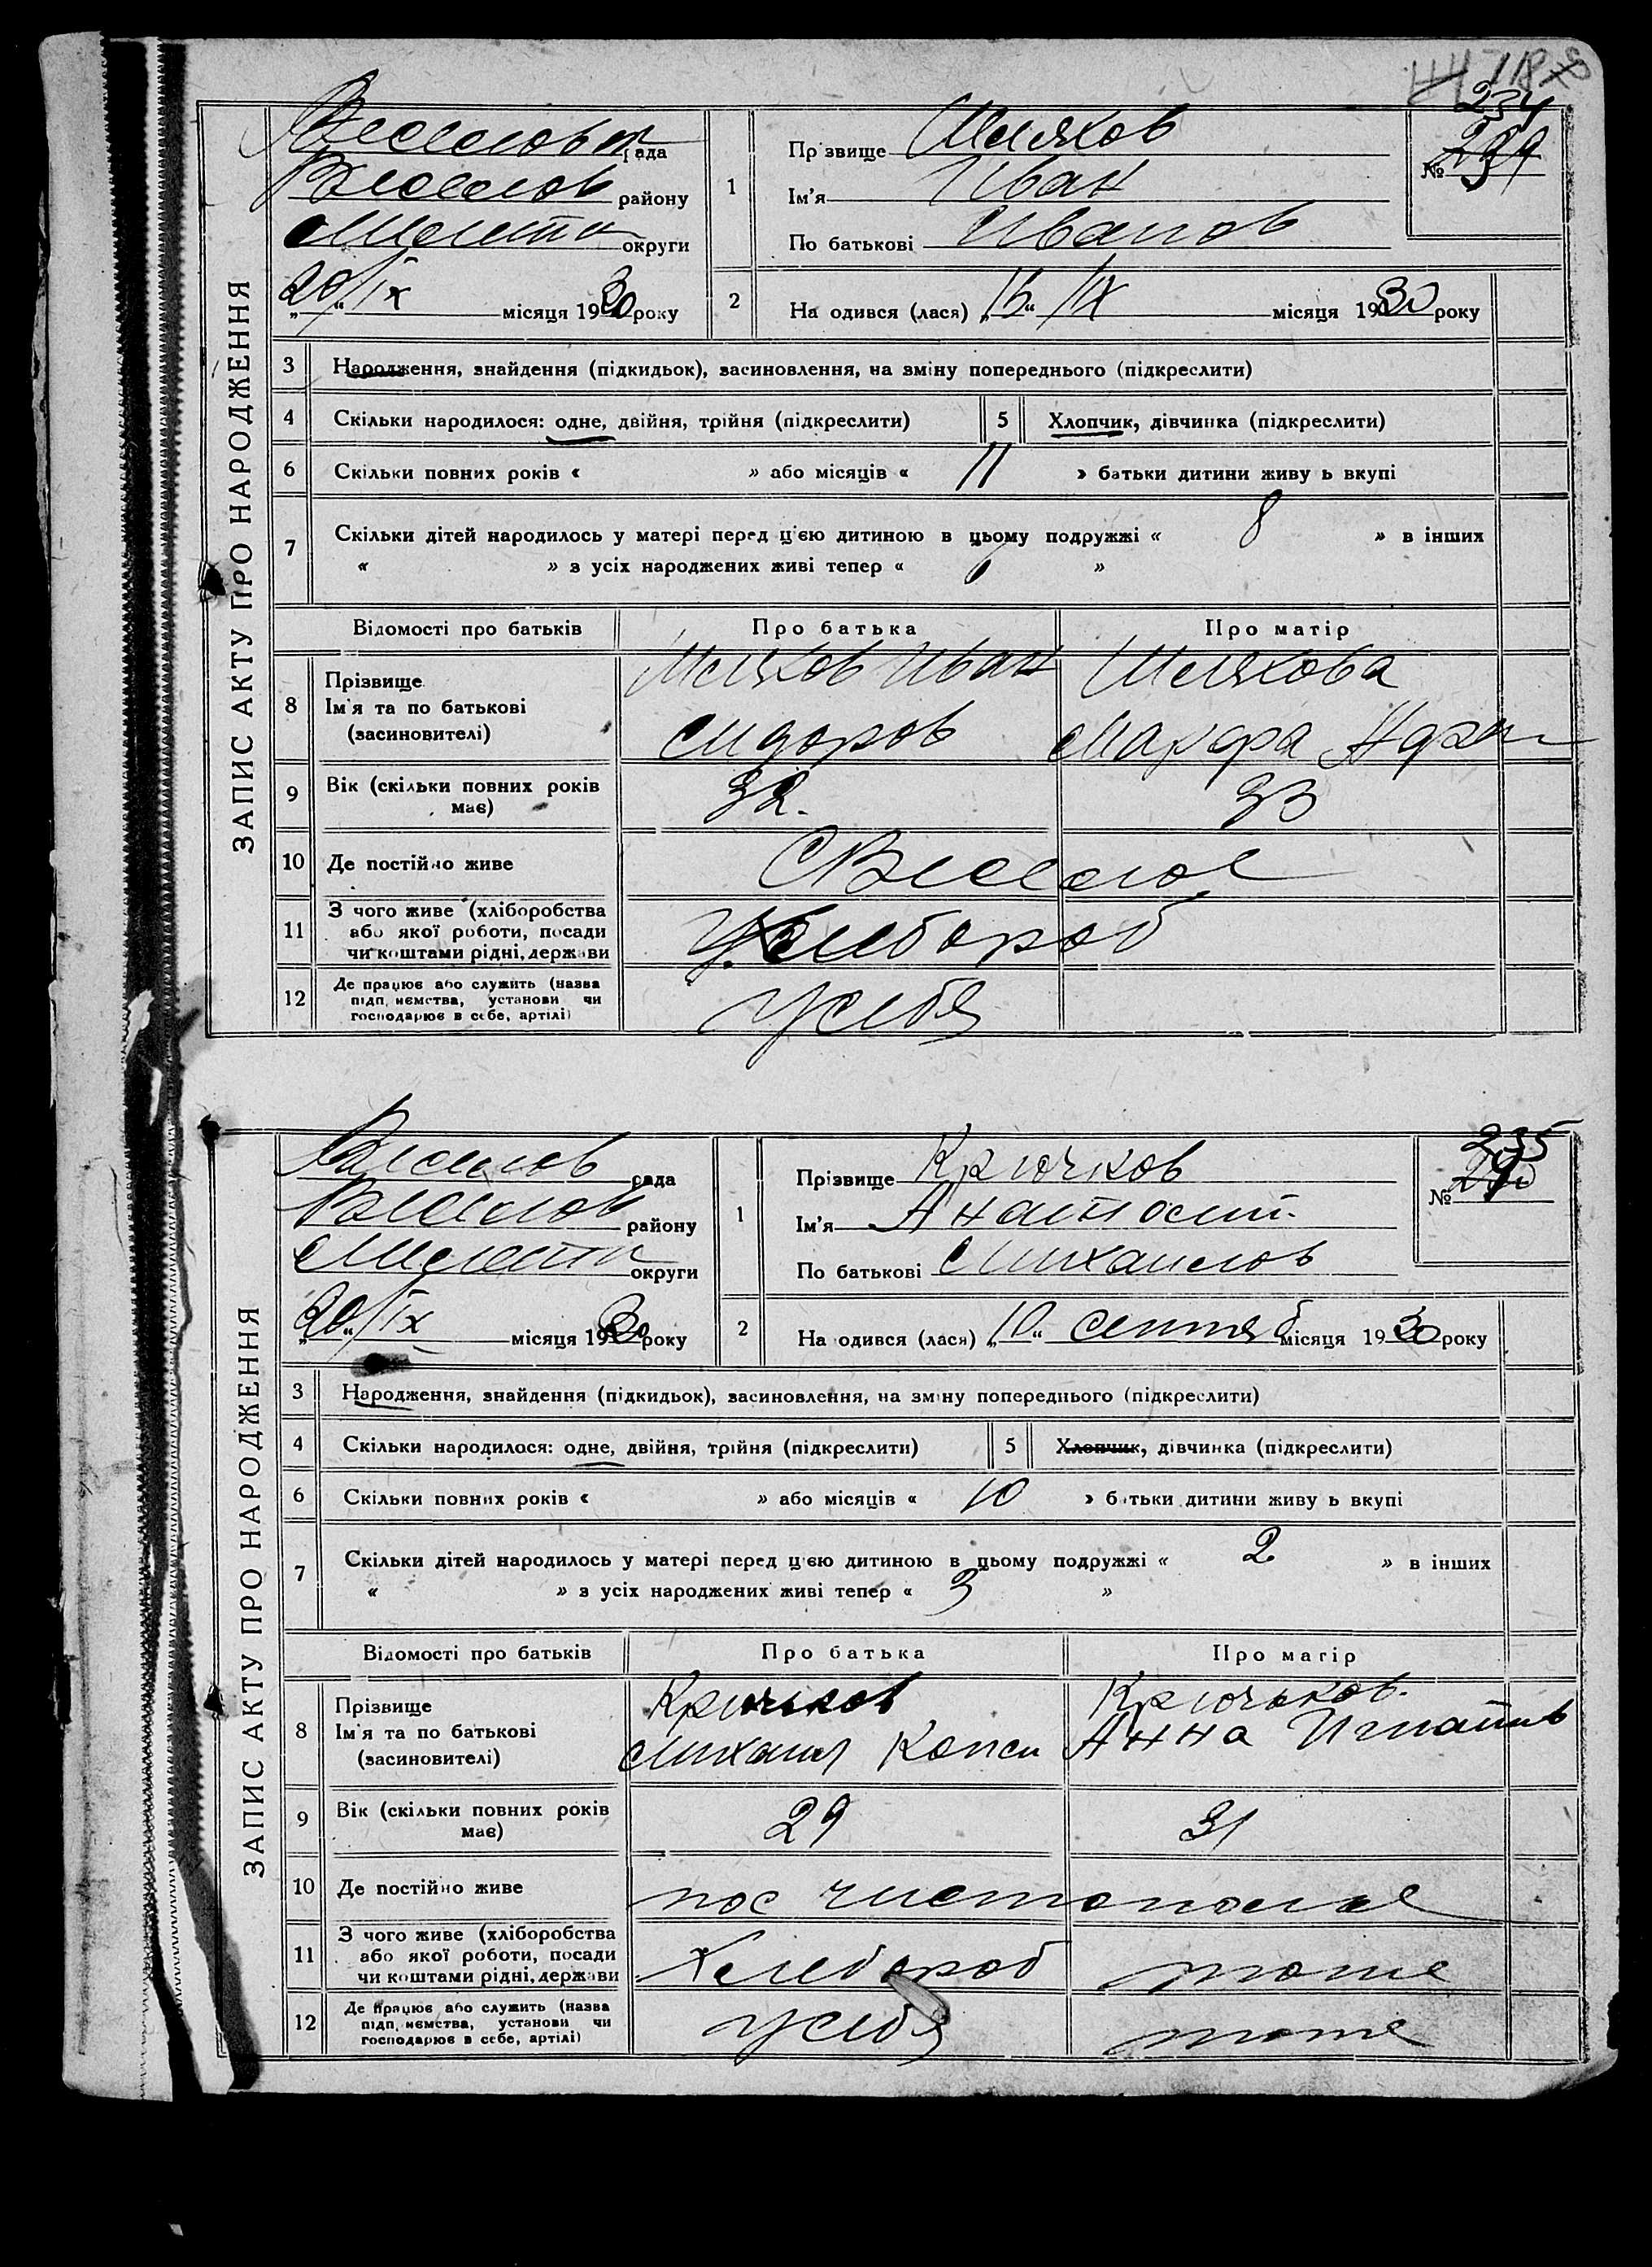 234
ЗАПИС АКТУ ПРО НАРОДЖЕННЯ
Веселов рада
Веселов району
Мелити округи
„20“ IX місяця 1930 року
1
Прізвище Шляхов
Ім'я Иван
По батькові Иванов
№ 239
2
Народився (лася) „15“ IX місяця 1930 року
3 Народження, знайдення (підкидьок), засиновлення, на зміну попереднього (підкреслити)
4 Скільки народилося: одне, двійня, трійня (підкреслити) 5 Хлопчик, дівчинка (підкреслити)
6 Скільки повних років « » або місяців « 11 » батьки дитини живуть вкупі
7 Скільки дітей народилось у матері перед цією дитиною в цьому подружжі « 8 » в інших
« » з усіх народжених живі тепер « »
Відомості про батьків Про батька Про матір
8 Прізвище
Ім'я та по батькові
(засновителі)
Иван
Сидоров
Шляхова
Марфа
9 Вік (скільки повних років має) 32. 33
10 Де постійно живе С Веселое
11 З чого живе (хліборобства
або якої роботи, посади
чи коштами рідні, держави
Хлебороб
12 Де працює або служить (назва
підприємства, установи чи
господарює в себе, артілі)
у себя
235
ЗАПИС АКТУ ПРО НАРОДЖЕННЯ
Веселов рада
Веселов району
Мелити округи
„20“ IX місяця 1930 року
1
Прізвище Крючков
Ім'я
По батькові Михаилов
№ 240
2
Народився (лася) „10“ сентяб місяця 1930 року
3 Народження, знайдення (підкидьок), засиновлення, на зміну попереднього (підкреслити)
4 Скільки народилося: одне, двійня, трійня (підкреслити) 5 Хлопчик, дівчинка (підкреслити)
6 Скільки повних років « » або місяців « 10 » батьки дитини живуть вкупі
7 Скільки дітей народилось у матері перед цією дитиною в цьому подружжі « 2 » в інших
« » з усіх народжених живі тепер « 3 »
Відомості про батьків Про батька Про матір
8 Прізвище
Ім'я та по батькові
(засиновителі)
Крючков
Михаил
Крючков.
Анна Игнатив
9 Вік (скільки повних років має) 29 31
10 Де постійно живе пос чистополье
11 З чого живе (хліборобства
або якої роботи, посади
чи коштами рідні, держави
Хлебороб тоже
12 Де працює або служить (назва
підприємства, установи чи
господарює в себе, артілі)
у себя тоже